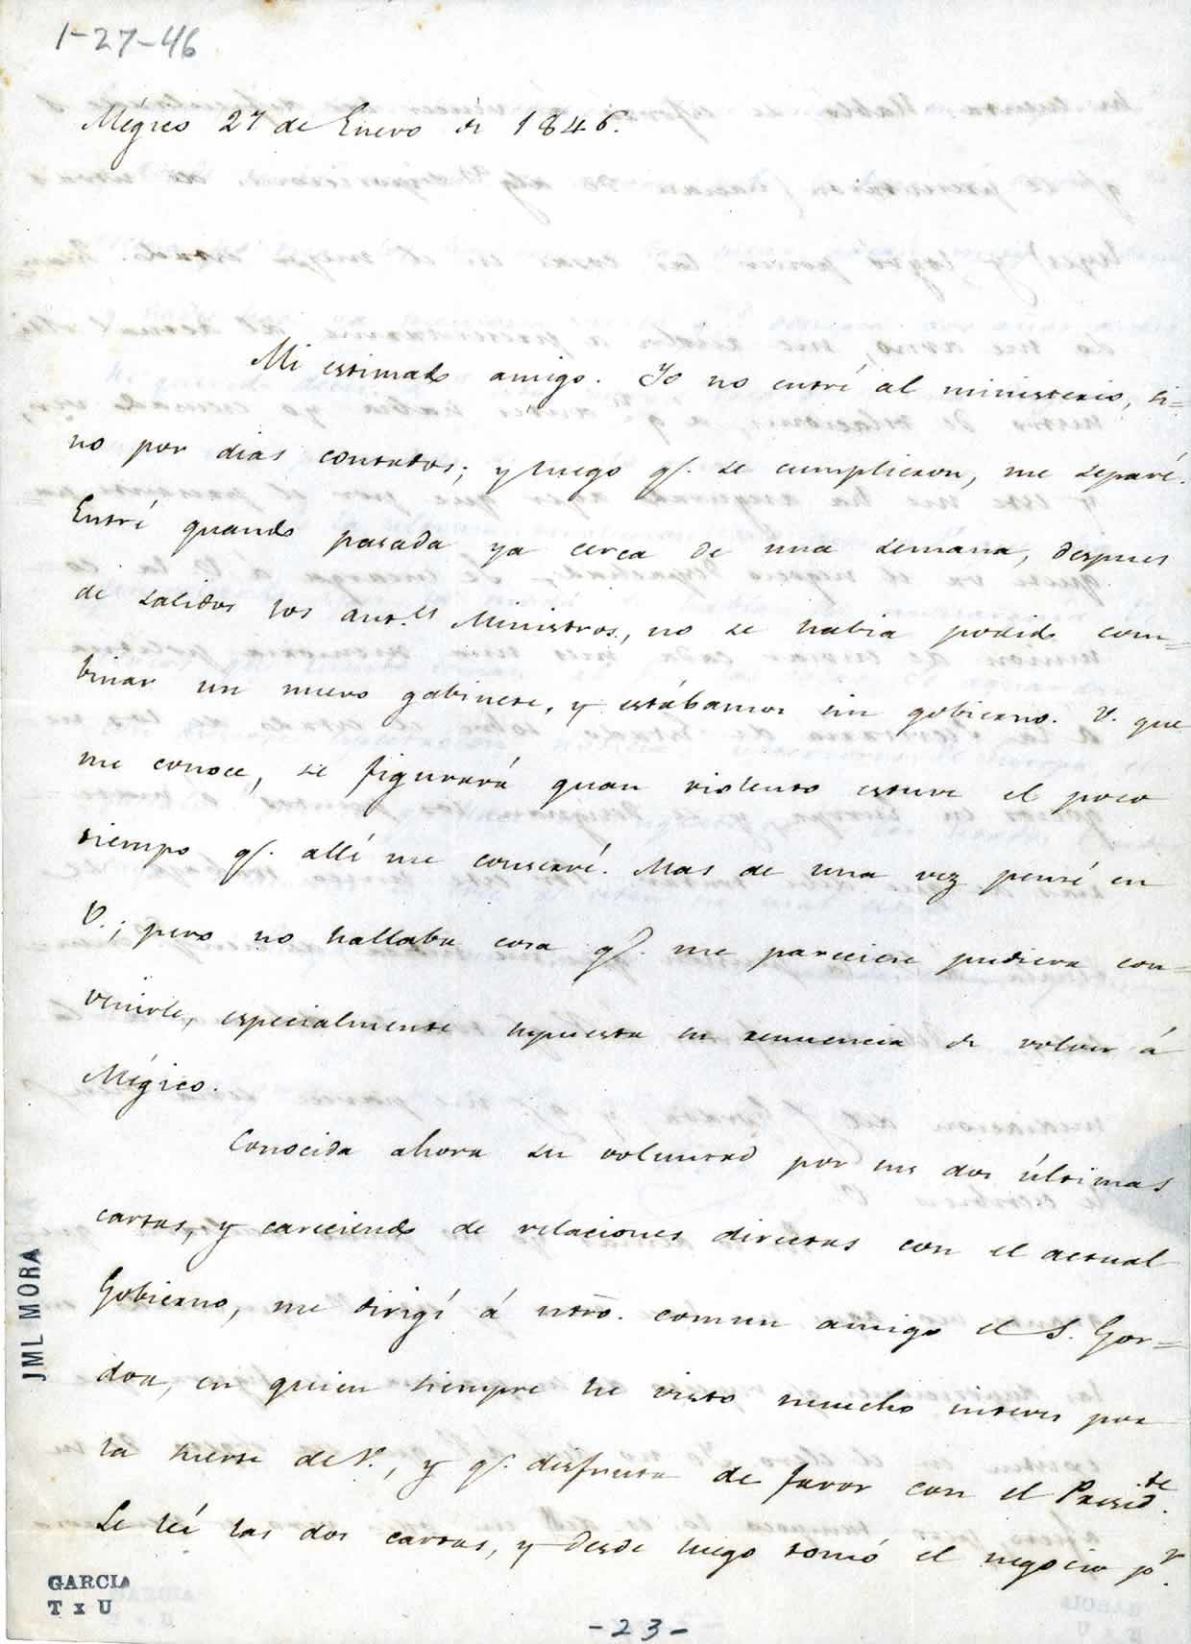 1-27-46
Mégico 27 de Enero de 1846.
Mi estimado amigo. Yo no entré al ministerio, si=
no por dias contados; y luego q͞. se cumplieron, me separé.
Entré quando pasada ya cerca de una semana, despues
de salidos los ant.es Ministros, no se habia podido com=
binar un nuevo gabinete, y estábamos sin gobierno. V. que
me conoce, se figurará quan violento estuve el poco
tiempo q͞. allí me conservé. Mas de una vez pensé en
V.; pero no hallaba cosa q͞. me pareciese pudiera con=
venirle, especialmente supuesta su renuencia de volver á
Mégico.
Conocida ahora su voluntad por sus dos últimas
cartas, y careciendo de relaciones directas con el actual
Gobierno, me dirigí á ntrō. comun amigo el S. Gor=
doa, en quien siempre he visto mucho interes por
la suerte de V., y q͞. disfruta de favor con el Presid.te
Le leí las dos cartas, y desde luego tomó el negocio p.r
JML MORA
GARCIA
T x U
-23-